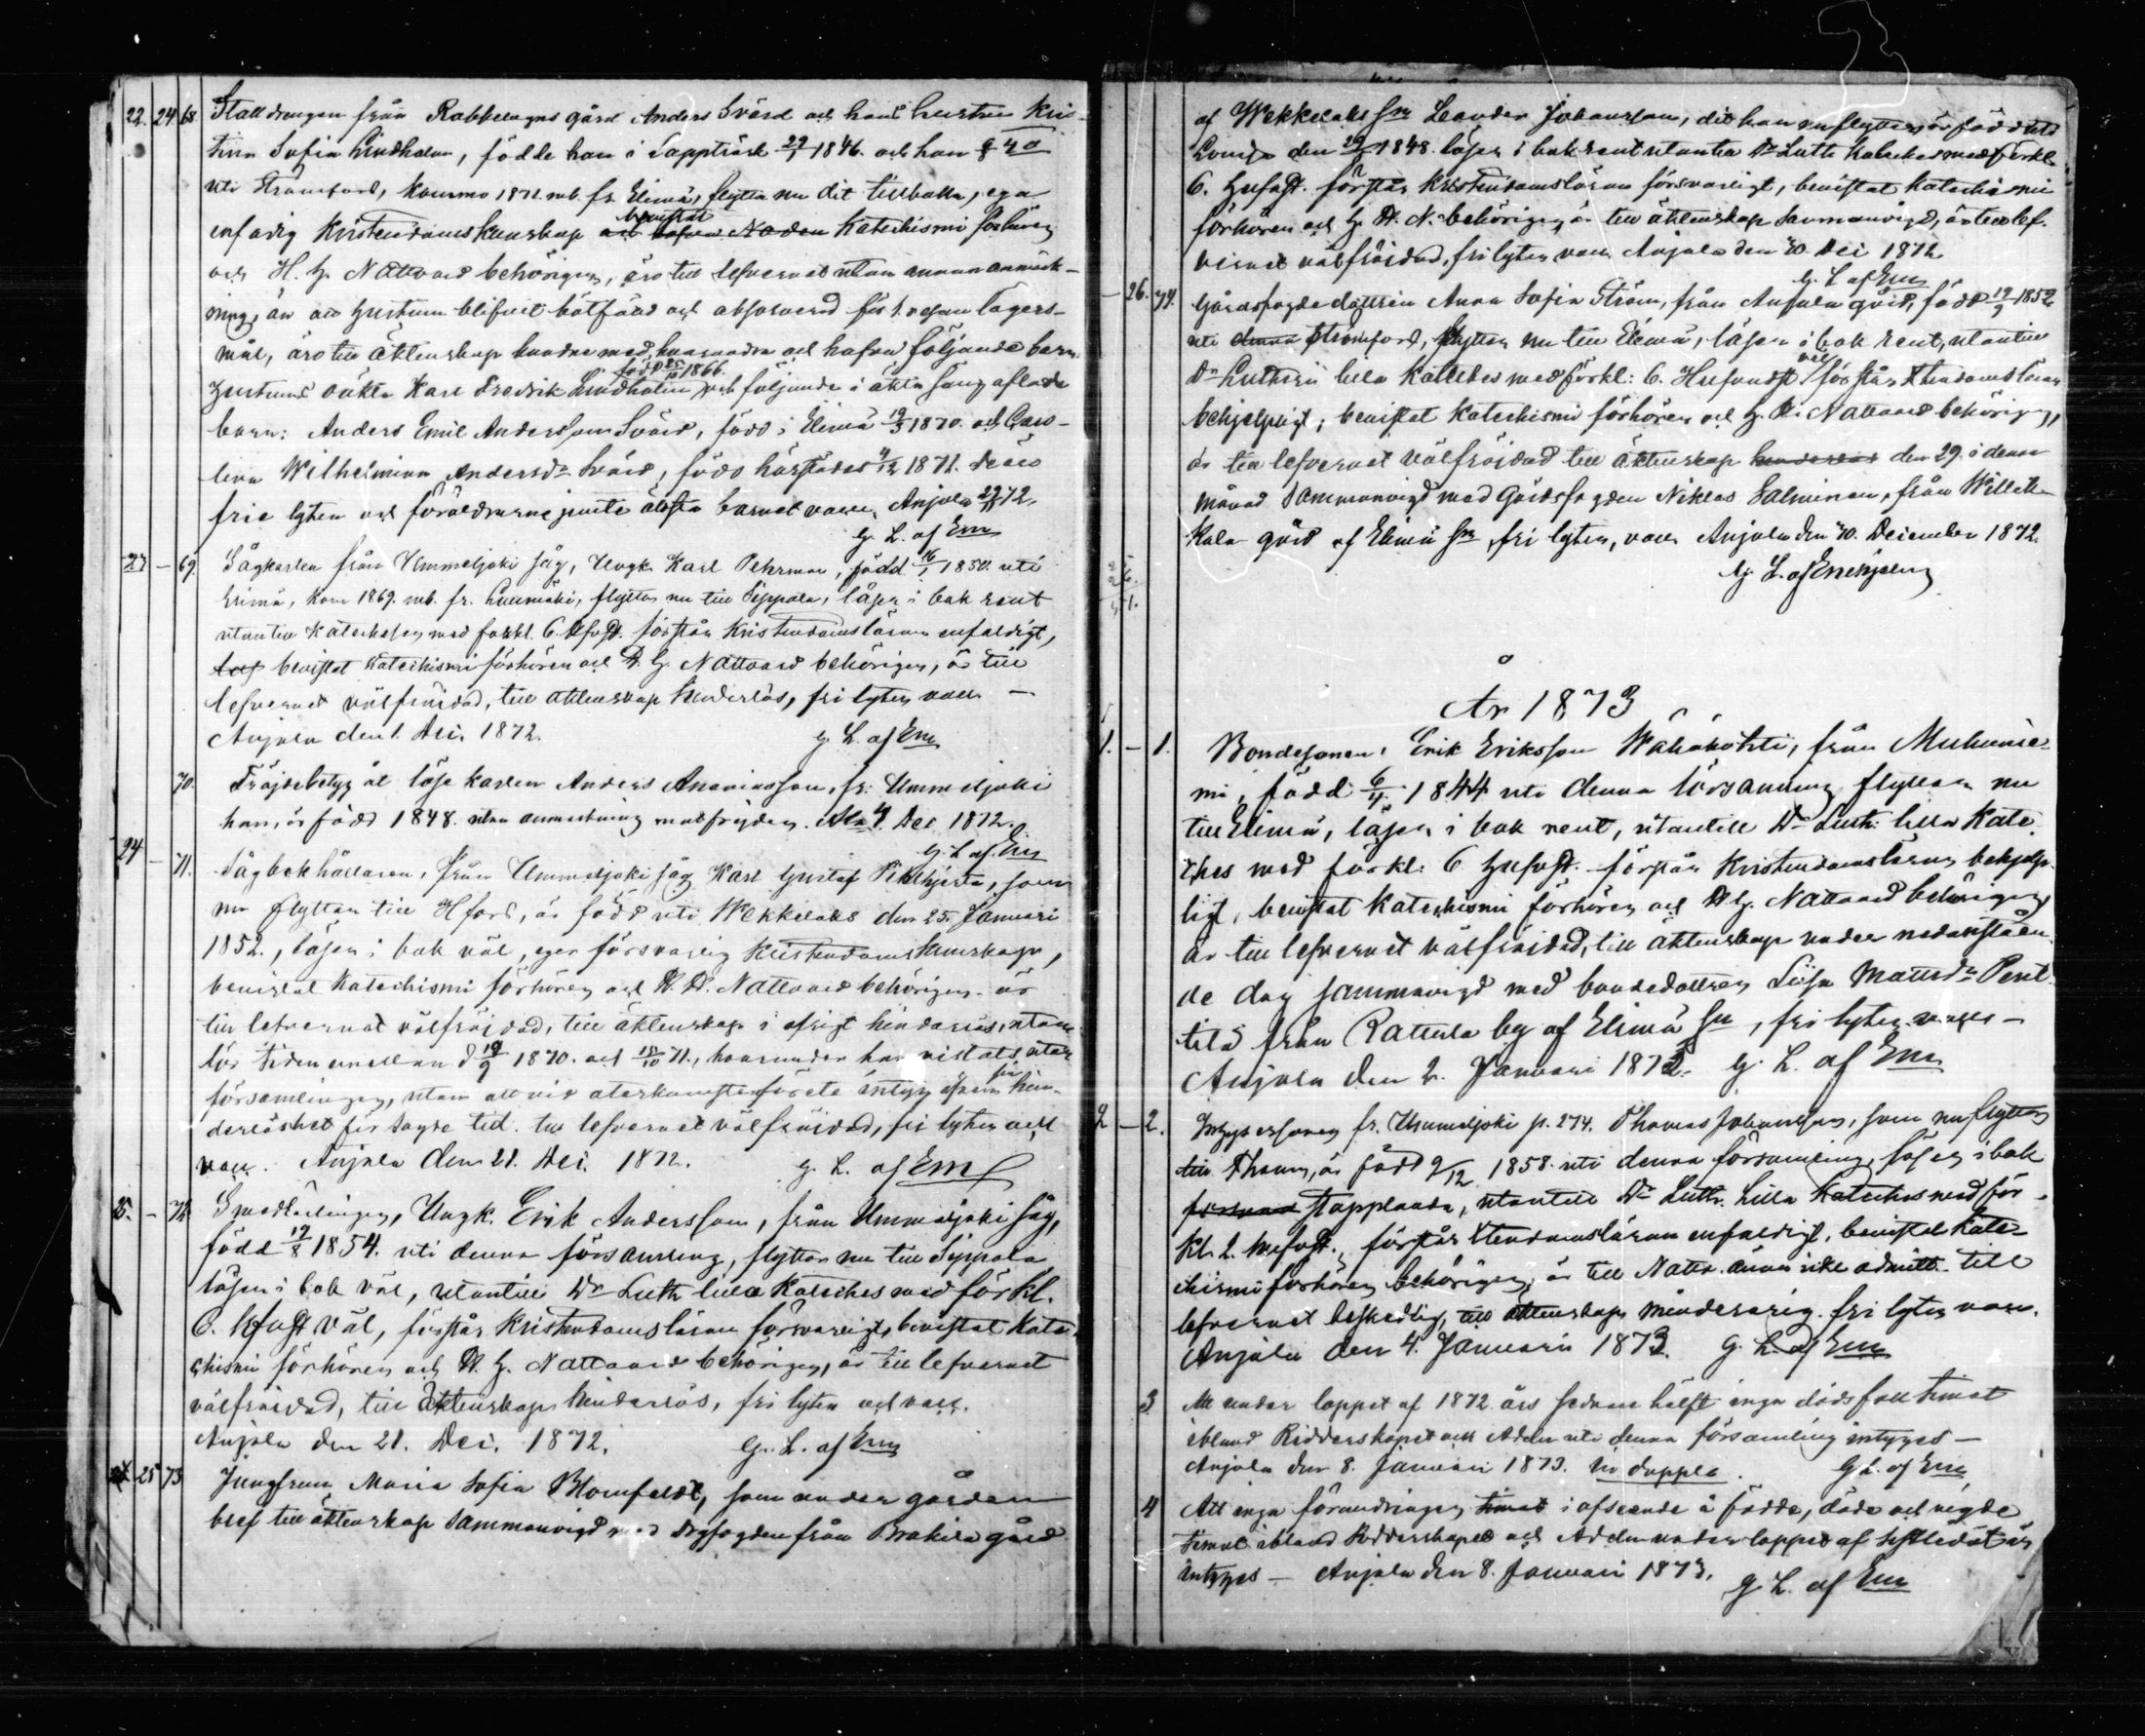 22. 24 68. Stalldrengen från Rabbelugns gård Anders Svärd och hans hustru Kris-
tina Sofia Lindholm, födde han i Lappträsk 29/1 1846. och hon 9/8 40
uti Strömfors, komna 1871. mb. fr. Elimä, flytta nu dit tillbaka, ega
enfaldig Kristendomskunskap och hafva Naden bevistat Katechismi förhören
och H. H. Nattvard behörigen, äro till lefvernet utan annan anmärk-
ning, än att hustrun blifvit bötfäld och absolverad för 1. resan lägers-
mål, äro till äktenskap bundna med hvarandra och hafva följande barn.
hustruns oäkta Karl Fredrik Lindholm född 25/10 1866. och följande i äkta säng aflade
barn: Anders Emil Andersson Svärd, född i Elimä 19/3 1870. och Caro-
lina Wilhelmina Andersdr Svärd, född härstädes 4/12 1871. De äro
frie lyten och föräldrarne jemte äldsta barnet vacc. Anjala 29/11 72.
G. L. af Em
23 - 69. Sågkarlen från Ummeljoki såg, Ungk. Karl Pehrman, född 16/1 1850. uti
Elimä, kom 1869. mb. fr. Luumäki, flyttar nu till Sippola, läser i bok rent
utantill Katechesen med förkl. 6. Hufvst. förstår Kristendomsläran enfaldigt,
bevistat Katechismi förhören och H. H. Nattvard behörigen, är till
lefvernet välfräjdad, till äktenskap hinderlös, fri lyten vacc. -
Anjala den 1. Dec. 1872. G. L. af Em
70. Fräjdebetyg åt löse karlen Anders Ananiasson, fr. Ummeljoki
han, är född 1848. utan anmärkning med frejden. Ala 4. Dec. 1872.
G. L. af Em
24 - 71. Sågbokhållaren, från Ummeljoki såg Karl Gustaf Pihlhjerta, som
nu flyttar till Hfors, är född uti Wekkelaks den 25. Januari
1852., läser i bok väl, eger försvarlig Kristendomskunskap,
bevistat Katechismi förhören och H. H. Nattvard behörigen. är
till lefvernet välfräjdad, till äktenskap i öfrigt hinderlös, utom
för tiden emellan d 19/9 1870. och 18/10 71., hvarunder har vistats utom
församlingen, utan att vid återkomsten förete intyg öfver sin hin-
derlöshet för sagde tid. till lefvernet välfräjdad, fri lyten och
vacc. Anjala den 21. Dec. 1872. G. L. af Em
25. - 72. Smedlärlingen, Ungk. Erik Andersson, från Ummeljoki såg,
född 17/8 1854. uti denna församling, flyttar nu till Sippola
läser i bok väl, utantill Dr Luth lilla Katches med förkl.
6. Hufvst väl, förstår Kristendomsläran försvarligt, bevistat Kate-
chismi förhören och H. H. Nattvard behörigen, är till lefvernet
välfräjdad, till äktenskap hinderlös, fri lyten och vacc.
Anjala den 21. Dec. 1872. G. L. af Em
25 73 Jungfrun Maria Sofia Blomfeldt, som under gården
blef till äktenskap sammanvigd med Drgfogden från Brakila gård
af Wekkelaks Sn Leander Johansson, dit hon nu flyttar, är född uti
Lovisa den 1848. läser i bok rent utantill Dr Luth Kateches med förkl
6. Hufvst. förstår Kristendomsläran försvarligt, bevistat Katechismi
förhören och H. H. N. behörigen, är till äktenskap sammanvigd, är till lef-
vernet välfräjdad, fri lyten vacc. Anjala den 30. Dec 1872.
G. L. af Em
26. 74. Gårdsfogdedottren Anna Sofia Ström, från Anjala gård, född 19/9 1852
uti denna Strömfors, flyttar nu till Elimä, läser i bok rent, utantill
Dr Lutheri lilla Kateches med förkl: 6. Hufvudst. väl förstår Xtendomsläran
behjelpligt, bevistat Katechismi förhören och H. H. Nattvard behörigen,
är till lefvernet välfräjdad till äktenskap hinderlös den 29. i denna
månad sammanvigd med Gårdsfogden Niklas Salminen, från Willik-
kala gård af Elimä Sn fri lyten, vacc. Anjala den 30. December 1872.
G. L. af Enehjelm
År 1873
1. - 1. Bondesonen, Erik Eriksson Wähäkohti, från Muhunie-
mi, född 6/4 1844 uti denna församling flyttar nu
till Elimä, läser i bok rent, utantill Dr Luth: lilla Kate-
ches med förkl: 6 Hufvst. förstår Kristendomsläran behjelp-
ligt, bevistat Katechismi förhören och H H. Nattvard behörigen
är till lefvernet välfräjdad, till äktenskap under nedanståen-
de dag sammanvigd med bondedottren Liisa Mattsdr Pent-
tilä från Rattula by af Elimä Sn, fri lyten vacc -
Anjala den 2. Januari 1873. G. L. af Em
2 - 2. fr. Ummeljoki p. 274. Thomas Johansson, som nu flyttar
till Thomn, är född 9/12 1858. uti denna församling, läser i bok
stapplande, utantill Dr Luth. Lilla Kateches med för-
kl. 2. Hufvst., förstår Xtendomsläran enfaldigt, bevistat Kate-
chismi förhören behörigen, är till Nattv. ännu icke admitt. till
lefvernet beskedlig, till äktenskap minderårig. fri lyten vacc.
Anjala den 4. Januari 1873. G. L. af Em
3 Att under loppet af 1872 års sednare hälft inga dödsfall timat
ibland Ridderskapet och Adeln uti denna församling intygas -
Anjala den 8. Januari 1873. in duplo. G. L. af Em
4 Att inga förändringar timat i afseende å födde, döde och vigde
timat ibland Ridderskapet och Adeln under loppet af sistledet år
intygas - Anjala den 8. Januari 1873. G. L. af Em